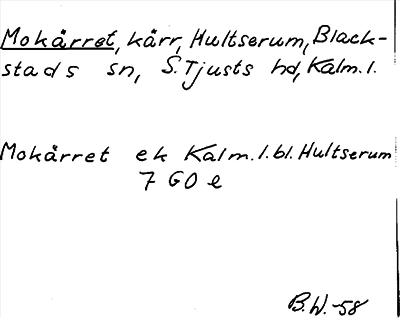 Mokärret, kärr, Hultserum, Black-
stads sn, S. Tjusts hd, Kalm. l.
Mokärret ek Kalm. l. bl. Hultserum
7 GO e
B.W.-58